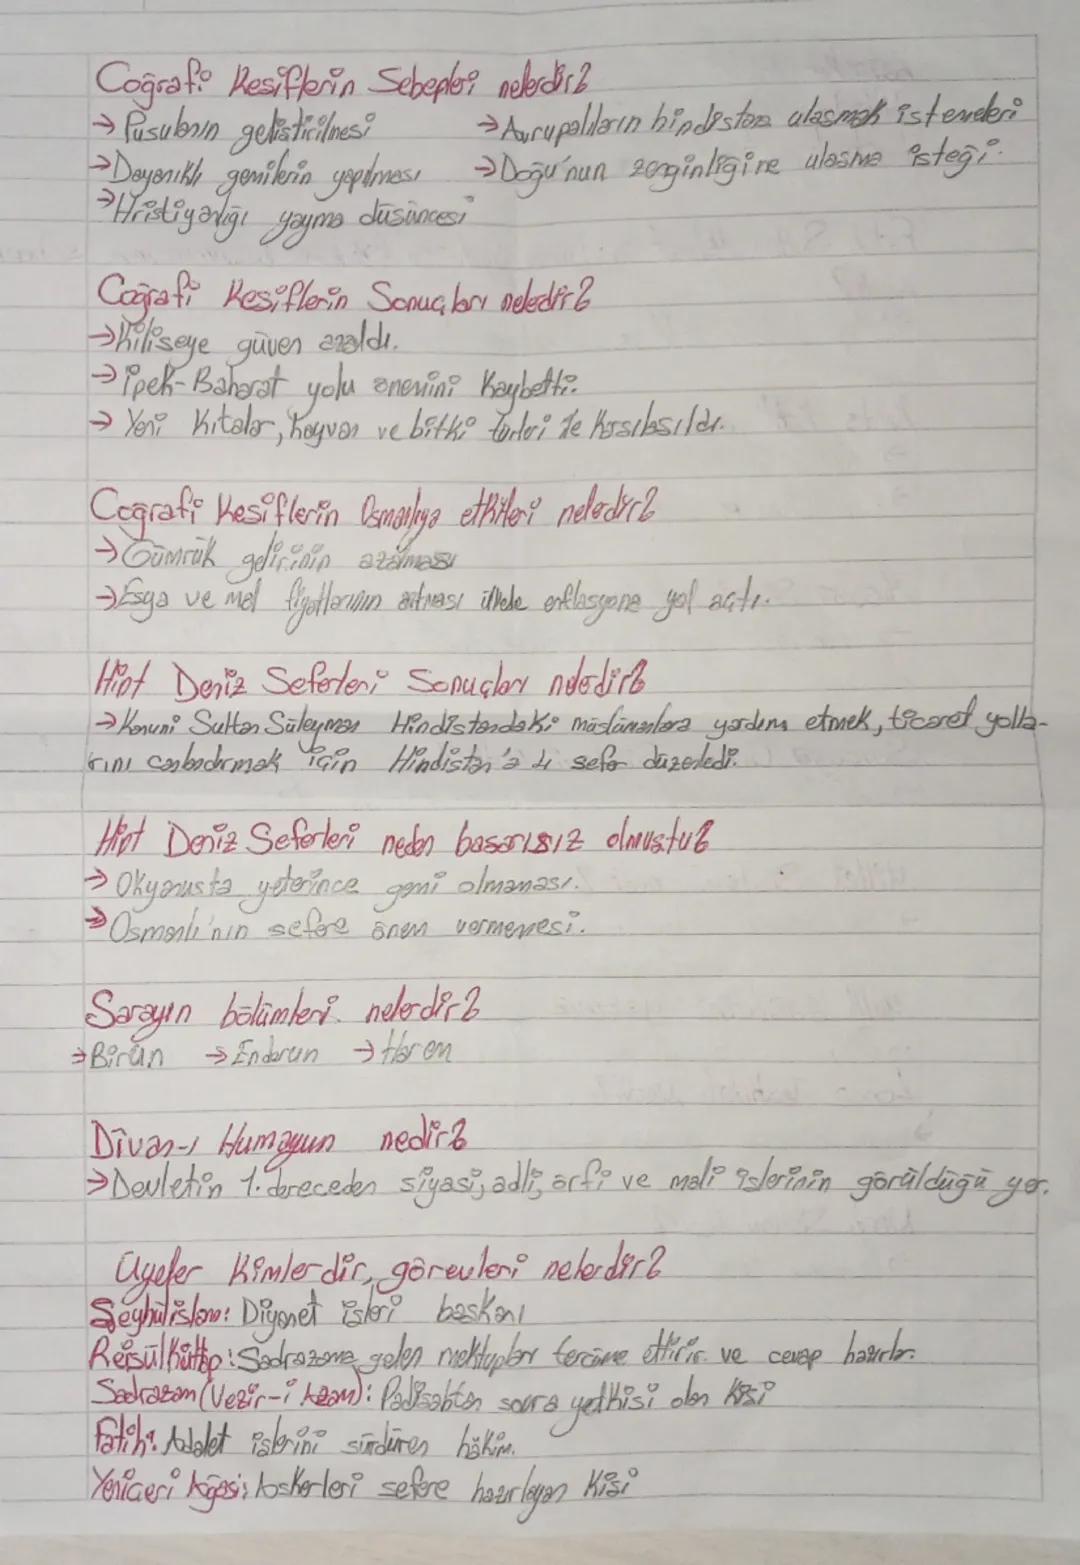 Coğrafi Kesiflerin Sebepleri nelerdir?
→ Pusulanın geliştirilmesi → Avrupalıların hindistana ulaşmak istemeleri
→ Dayanıklı gemilerin yapılması → Doğu'nun zenginliğine ulaşma isteği.
→ Hristiyanlığı yayma düşüncesi
Coğrafi Kesiflerin Sonuçları nelerdir?
→ Kiliseye güven azaldı.
→ ipek-Baharat yolu önemini Kaybetti.
→ Yeni Kıtalar, hayvan ve bitki türleri ile Karsılasıldı.
Coğrafi Kesiflerin Osmanlıya etkileri nelerdir?
→ Gümrük gelirinin azalması
→ Esya ve mal fiyatlarının artması ülkede enflasyona yol açtı.
Hint Deniz Seferleri Sonuçları nelerdir?
→ Kanuni Sultan Süleyman Hindistandaki müslümanlara yardım etmek, ticaret yolla-
rını canlandırmak için Hindistan'a 4 sefer düzenledi.
Hint Deniz Seferleri neden basarısız olmustu?
→ Okyanusta yeterince gemi olmaması.
→ Osmanlı'nın sefere önem vermemesi.
Sarayın bölümleri nelerdir?
→ Birün → Enderun → Harem
Divan-ı Humayun nedir?
→ Devletin 1. dereceden siyasi, adli, örfi ve mali islerinin görüldüğü yer.
Üyeler Kimlerdir, görevleri nelerdir?
Seyhülislam: Diyanet isleri baskanı
Reisülküttap: Sadrazama gelen mektupları tercüme ettirir ve cevap hazırlar.
Sadrazam (Vezir-i Azam): Padisahtan sonra yetkisi olan Kisi
Fatih: Adalet islerini sürdüren hâkim.
Yeniceri Ağası: Askerleri sefere hazırlayan Kisi